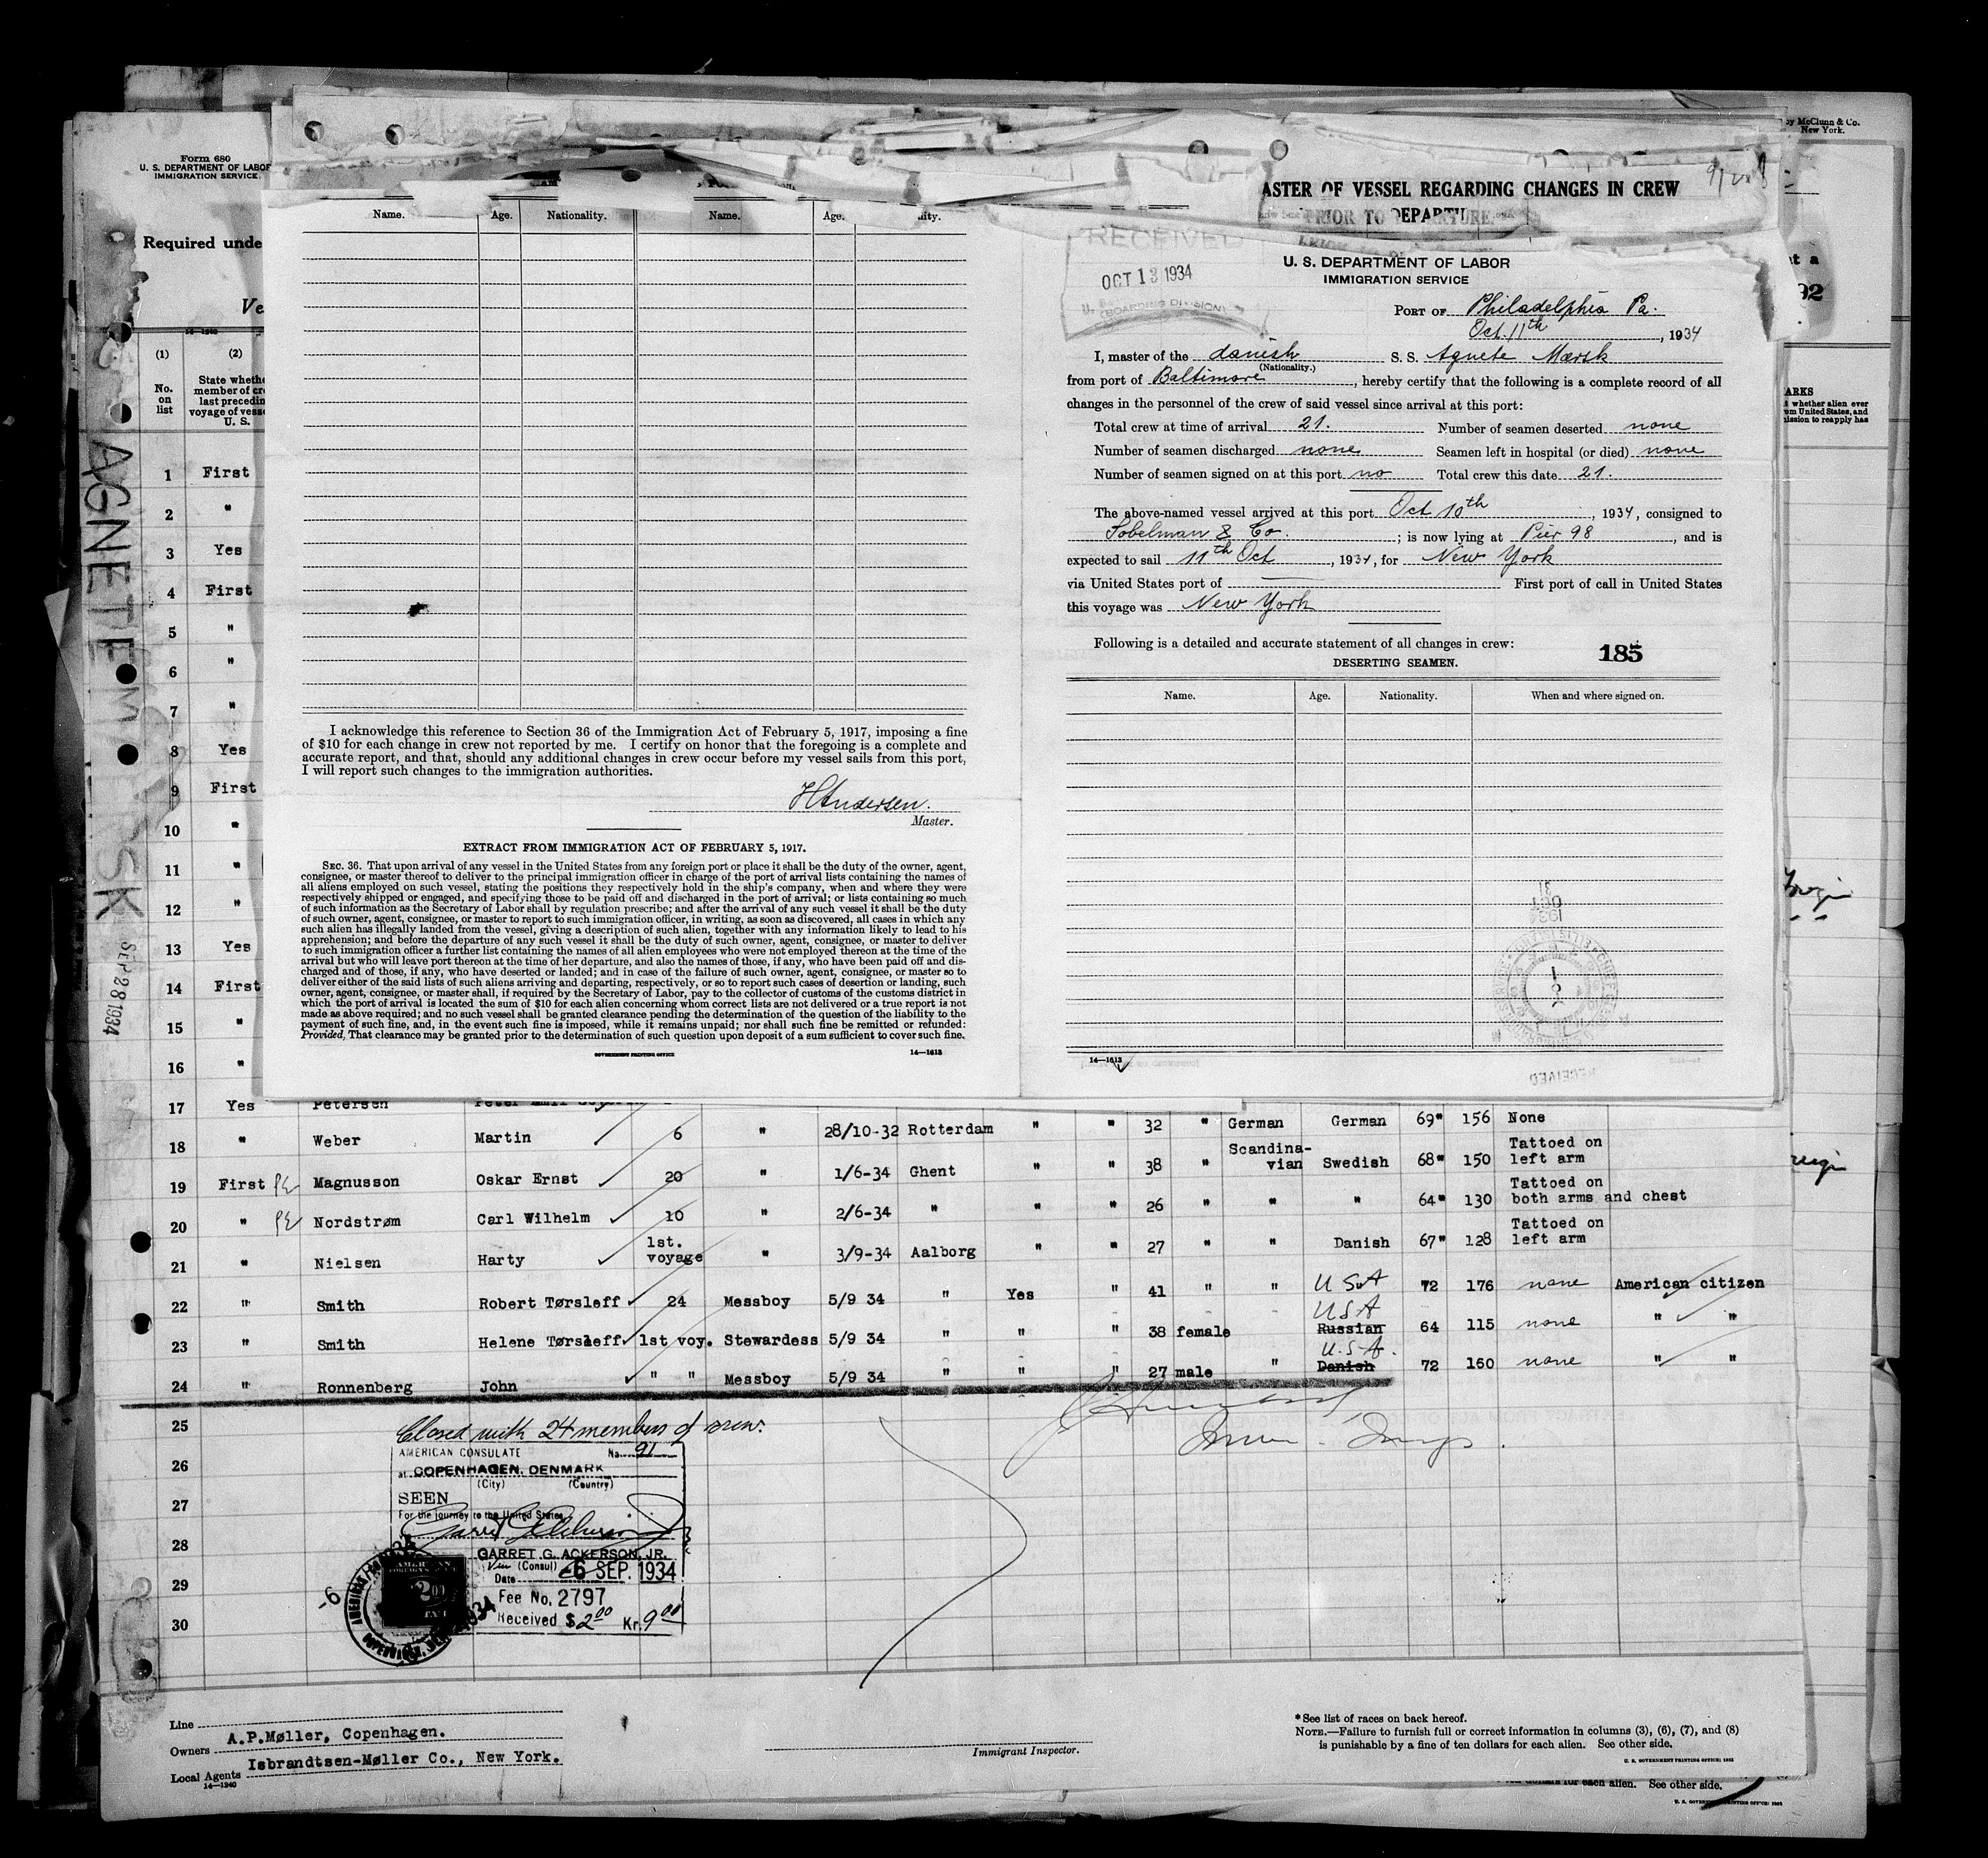 Form 680
U. S. DEPARTMENT OF LABOR
IMMIGRATION SERVICE
Required unde
Ve
(1)
(2)
No. on list
State whethe
member of cre
last precedin
voyage of vesse
U. S.
AGNETE MÆRSK
SEP 28 1934
1 First
2 "
3 Yes
4 First
5 "
6 "
7 "
8 Yes
9 First
10 "
11 "
12 "
13 Yes
14 First
15 "
16 "
by McClunn & Co.
New York.
t a
92
ARKS
whether alien ever
om United States, and
ission to reapply has
Name. Age. Nationality. Name. Age. ity.
I acknowledge this reference to Section 36 of the Immigration Act of February 5, 1917, imposing a fine
of $10 for each change in crew not reported by me. I certify on honor that the foregoing is a complete and
accurate report, and that, should any additional changes in crew occur before my vessel sails from this port,
I will report such changes to the immigration authorities.
HAndersen.
Master.
EXTRACT FROM IMMIGRATION ACT OF FEBRUARY 5, 1917.
SEC. 36. That upon arrival of any vessel in the United States from any foreign port or place it shall be the duty of the owner, agent,
consignee, or master thereof to deliver to the principal immigration officer in charge of the port of arrival lists containing the names of
all aliens employed on such vessel, stating the positions they respectively hold in the ship's company, when and where they were
respectively shipped or engaged, and specifying those to be paid off and discharged in the port of arrival; or lists containing so much
of such information as the Secretary of Labor shall by regulation prescribe; and after the arrival of any such vessel it shall be the duty
of such owner, agent, consignee, or master to report to such immigration officer, in writing, as soon as discovered, all cases in which any
such alien has illegally landed from the vessel, giving a description of such alien, together with any information likely to lead to his
apprehension; and before the departure of any such vessel it shall be the duty of such owner, agent, consignee, or master to deliver
to such immigration officer a further list containing the names of all alien employees who were not employed thereon at the time of the
arrival but who will leave port thereon at the time of her departure, and also the names of those, if any, who have been paid off and dis-
charged and of those, if any, who have deserted or landed; and in case of the failure of such owner, agent, consignee, or master so to
deliver either of the said lists of such aliens arriving and departing, respectively, or so to report such cases of desertion or landing, such
owner, agent, consignee, or master shall, if required by the Secretary of Labor, pay to the collector of customs of the customs district in
which the port of arrival is located the sum of $10 for each alien concerning whom correct lists are not delivered or a true report is not
made as above required; and no such vessel shall be granted clearance pending the determination of the question of the liability to the
payment of such fine, and, in the event such fine is imposed, while it remains unpaid; nor shall such fine be remitted or refunded:
Provided, That clearance may be granted prior to the determination of such question upon deposit of a sum sufficient to cover such fine.
GOVERNMENT PRINTING OFFICE 14—1613
ASTER OF VESSEL REGARDING CHANGES IN CREW
PRIOR TO DEPARTURE
RECEIVED
OCT 13 1934
(BOARDING DIVISION)
U. S. DEPARTMENT OF LABOR
IMMIGRATION SERVICE
PORT OF Philadelphia Pa.
Oct. 11th, 1934
I, master of the danish S. S. Agnete Mærsk
(Nationality.)
from port of Baltimore, hereby certify that the following is a complete record of all
changes in the personnel of the crew of said vessel since arrival at this port:
Total crew at time of arrival 21. Number of seamen deserted none
Number of seamen discharged none Seamen left in hospital (or died) none
Number of seamen signed on at this port no Total crew this date 21.
The above-named vessel arrived at this port Oct 10th, 1934, consigned to
Sobelman & Co.; is now lying at Pier 98, and is
expected to sail 11th Oct, 1934, for New York
via United States port of First port of call in United States
this voyage was New York
Following is a detailed and accurate statement of all changes in crew:
185
DESERTING SEAMEN.
Name. Age. Nationality. When and where signed on.
14—1613
RECEIVED
17 Yes Petersen Peter Emil
18 " Weber Martin 6 " 28/10-32 Rotterdam " " 32 " German German 69" 156 None
19 First PE Magnusson Oskar Ernst 20 " 1/6-34 Ghent " " 38 " Scandina-vian Swedish 68" 150 Tattoed on left arm
20 " PE Nordstrøm Carl Wilhelm 10 " 2/6-34 " " " 26 " " " 64" 130 Tattoed on both arms and chest
21 " Nielsen Harty 1st. voyage " 3/9-34 Aalborg " " 27 " " Danish 67" 128 Tattoed on left arm
22 " Smith Robert Tørsleff 24 Messboy 5/9 34 " Yes " 41 " " USA 72 176 none American citizen
23 " Smith Helene Tørsleff 1st voy. Stewardess 5/9 34 " " " 38 female USA Russian 64 115 none " "
24 " Ronnenberg John " " Messboy 5/9 34 " " " 27 male " U.S.A. Danish 72 160 none " "
25
26
27
28
29
30
Closed with 24 members of crew.
AMERICAN CONSULATE No. 91
at COPENHAGEN, DENMARK
(City) (Country)
SEEN
For the journey to the United States
GARRET G. ACKERSON, JR.
Vice (Consul)
Date -6 SEP. 1934
Fee No. 2797
Received $2 00 Kr. 9 00
Line
Owners A.P.Møller, Copenhagen.
Local Agents Isbrandtsen-Møller Co., New York.
14—1240
Immigrant Inspector.
*See list of races on back hereof.
NOTE.—Failure to furnish full or correct information in columns (3), (6), (7), and (8)
is punishable by a fine of ten dollars for each alien. See other side.
U. S. GOVERNMENT PRINTING OFFICE: 1932
dollars for each alien. See other side.